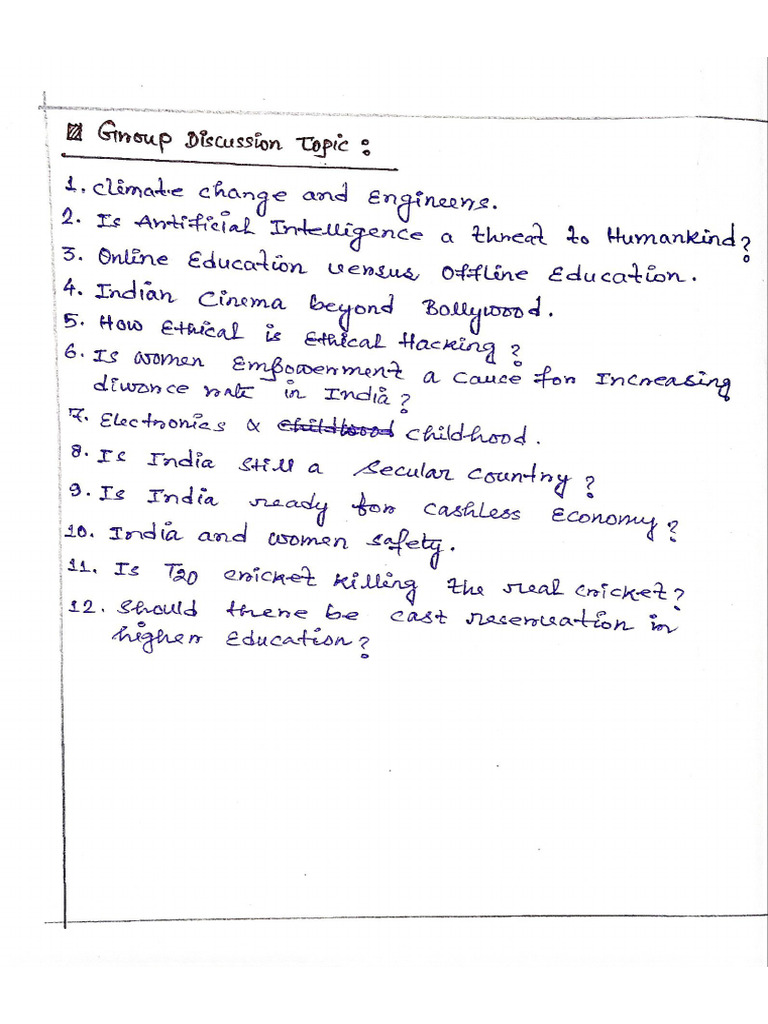 Group Discussion Topic:
1. Climate change and Engineers.
2. Is Artificial Intelligence a threat to Humankind?
3. Online Education versus Offline Education.
4. Indian Cinema beyond Bollywood.
5. How Ethical is Ethical Hacking?
6. Is women Empowerment a cause for Increasing
divorce rate in India?
7. Electronics & childhood childhood.
8. Is India still a secular country?
9. Is India ready for cashless Economy?
10. India and women safety.
11. Is T20 cricket killing the real cricket?
12. Should there be cast reservation in
higher Education?